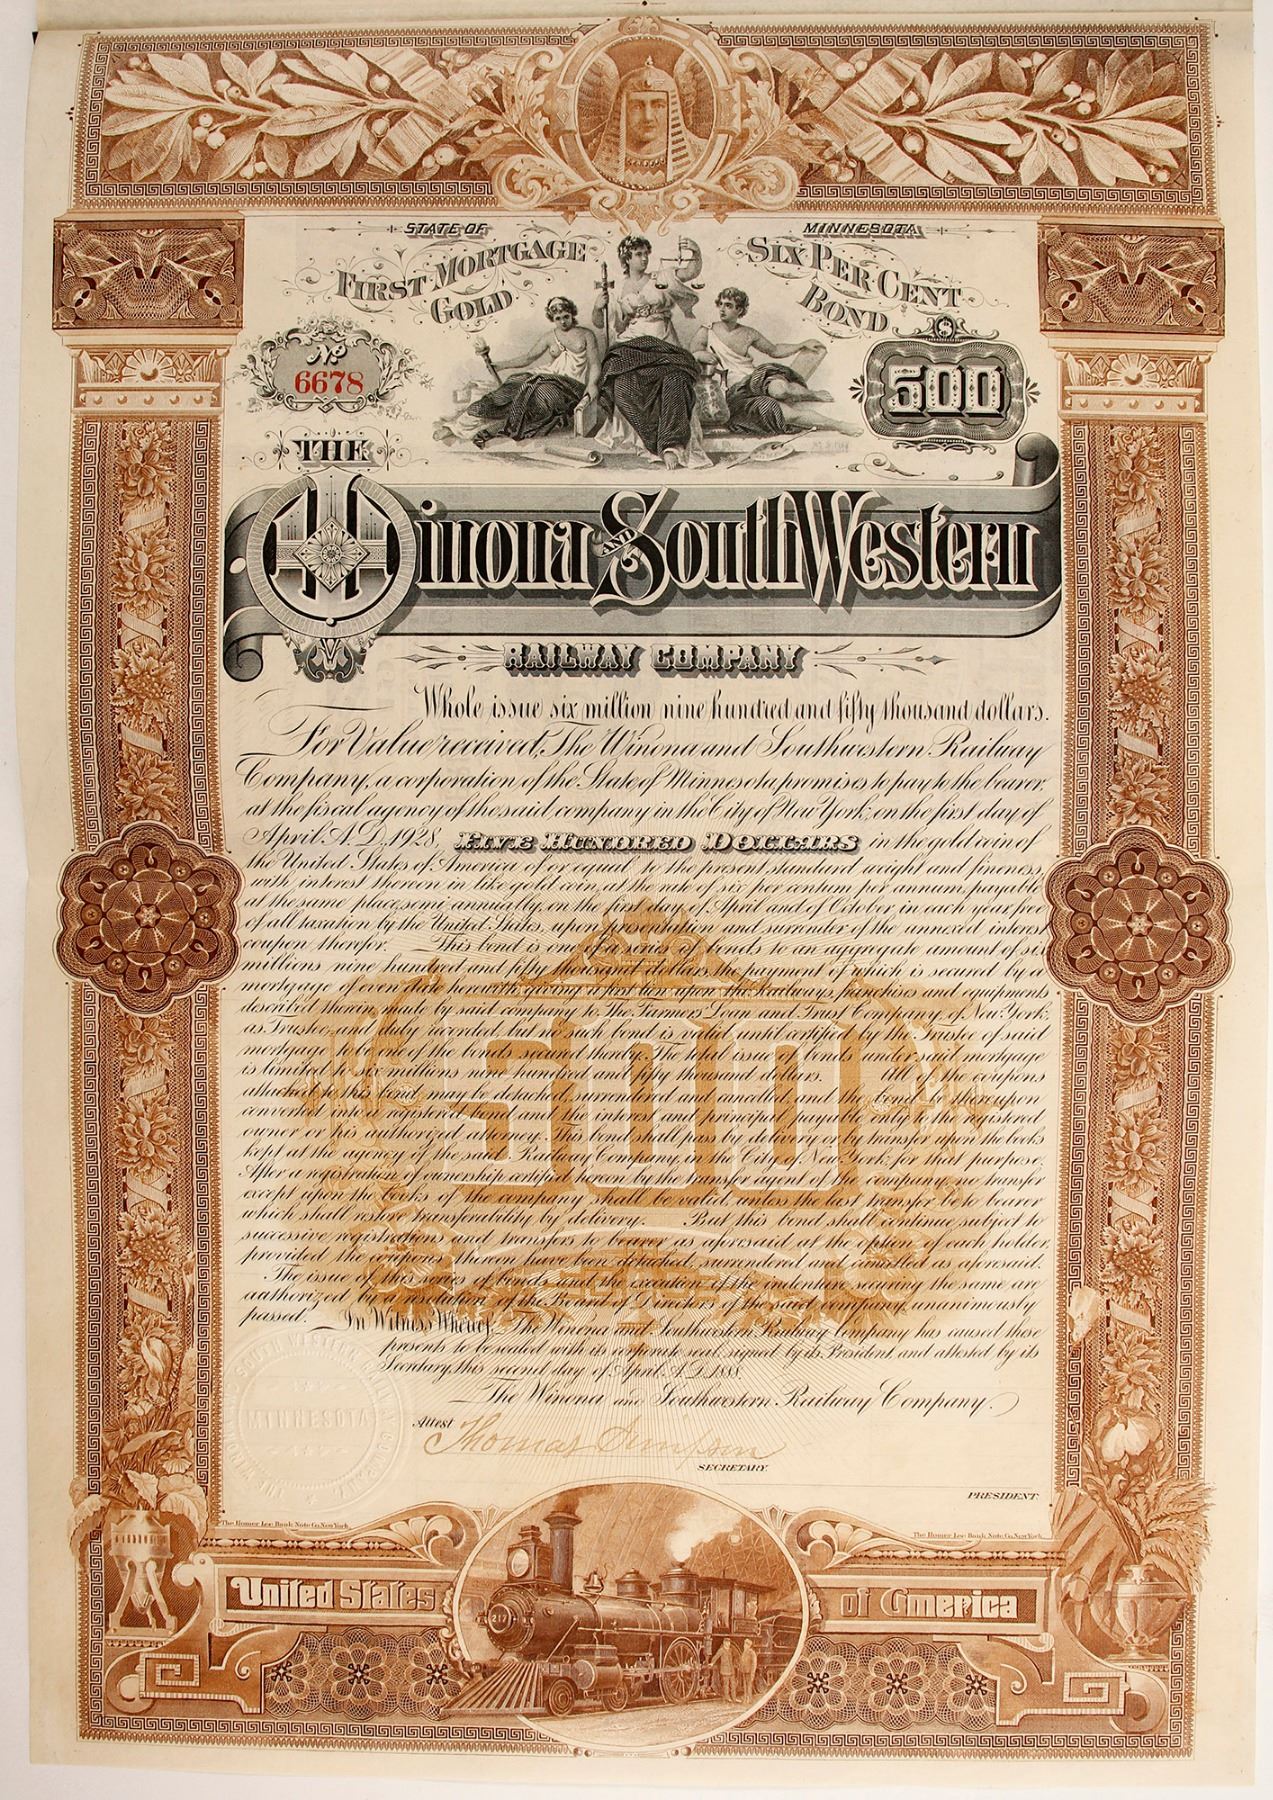 STATE OF MINNESOTA
FIRST MORTGAGE SIX PER CENT
GOLD BOND
No
6678
$
500
THE
Winona AND South Western
RAILWAY COMPANY
Whole issue six million nine hundred and fifty thousand dollars.
For Value received, The Winona and Southwestern Railway
Company, a corporation of the State of Minnesota promises to pay to the bearer,
at the fiscal agency of the said company in the City of New York, on the first day of
April A.D. 1928, FIVE HUNDRED DOLLARS in the gold coin of
the United States of America of or equal to the present standard weight and fineness,
with interest thereon in like gold coin, at the rate of six per centum per annum, payable
at the same place, semi-annually, on the first day of April and of October, in each year, free
of all taxation by the United States, upon presentation and surrender of the annexed interest
coupon therefor. This bond is one of a series of bonds to an aggregate amount of six
millions nine hundred and fifty thousand dollars, the payment of which is secured by a
mortgage of even date herewith, giving a first lien upon the Railways, franchises and equipments
described therein, made by said company to The Farmers' Loan and Trust Company, of New York,
as Trustee, and duly recorded, but no such bond is valid until certified by the Trustee of said
mortgage to be one of the bonds secured thereby. The total issue of bonds under said mortgage
is limited to six millions nine hundred and fifty thousand dollars. All of the coupons
attached to this bond, may be detached, surrendered and cancelled, and the bond be thereupon
converted into a registered bond, and the interest and principal payable only to the registered
owner or his authorized attorney. This bond shall pass by delivery or by transfer upon the books
kept at the agency of the said Railway Company, in the City of New York, for that purpose.
After a registration of ownership certified hereon by the transfer agent of the company, no transfer
except upon the books of the company shall be valid, unless the last transfer be to bearer
which shall restore transferability by delivery. But this bond shall continue subject to
successive registrations and transfers to bearer as aforesaid at the option of each holder,
provided the coupons thereon have been detached, surrendered and cancelled as aforesaid.
The issue of this series of bonds and the execution of the indenture securing the same are
authorized by a resolution of the Board of Directors of the said company, unanimously
passed. In Witness Whereof, The Winona and Southwestern Railway Company has caused these
presents to be sealed with its corporate seal, signed by its President, and attested by its
Secretary, this second day of April A.D. 1888
The Winona and Southwestern Railway Company.
Attest
Thomas Simpson
SECRETARY.
PRESIDENT.
THE WINONA AND SOUTH WESTERN RAILWAY COMPANY
MINNESOTA
The Homer Lee Bank Note Co. New York.
The Homer Lee Bank Note Co. New York.
United States of America
217